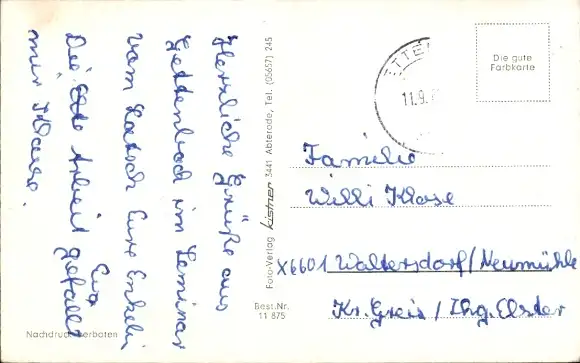 Herzliche Grüße aus
Gettenbach im Seminar
vom
Eure Enkelin
Eva
Die Arbeit gefällt
mir
Nachdruck verboten
Foto-Verlag kistner 3441 Abterode, Tel. (05657) 245
Best.Nr.
11 875
11.9.
Die gute
Farbkarte
Familie
Willi Klose
X6601 Waltersdorf/Neumühle
Kr. Greiz / Thg. Elster